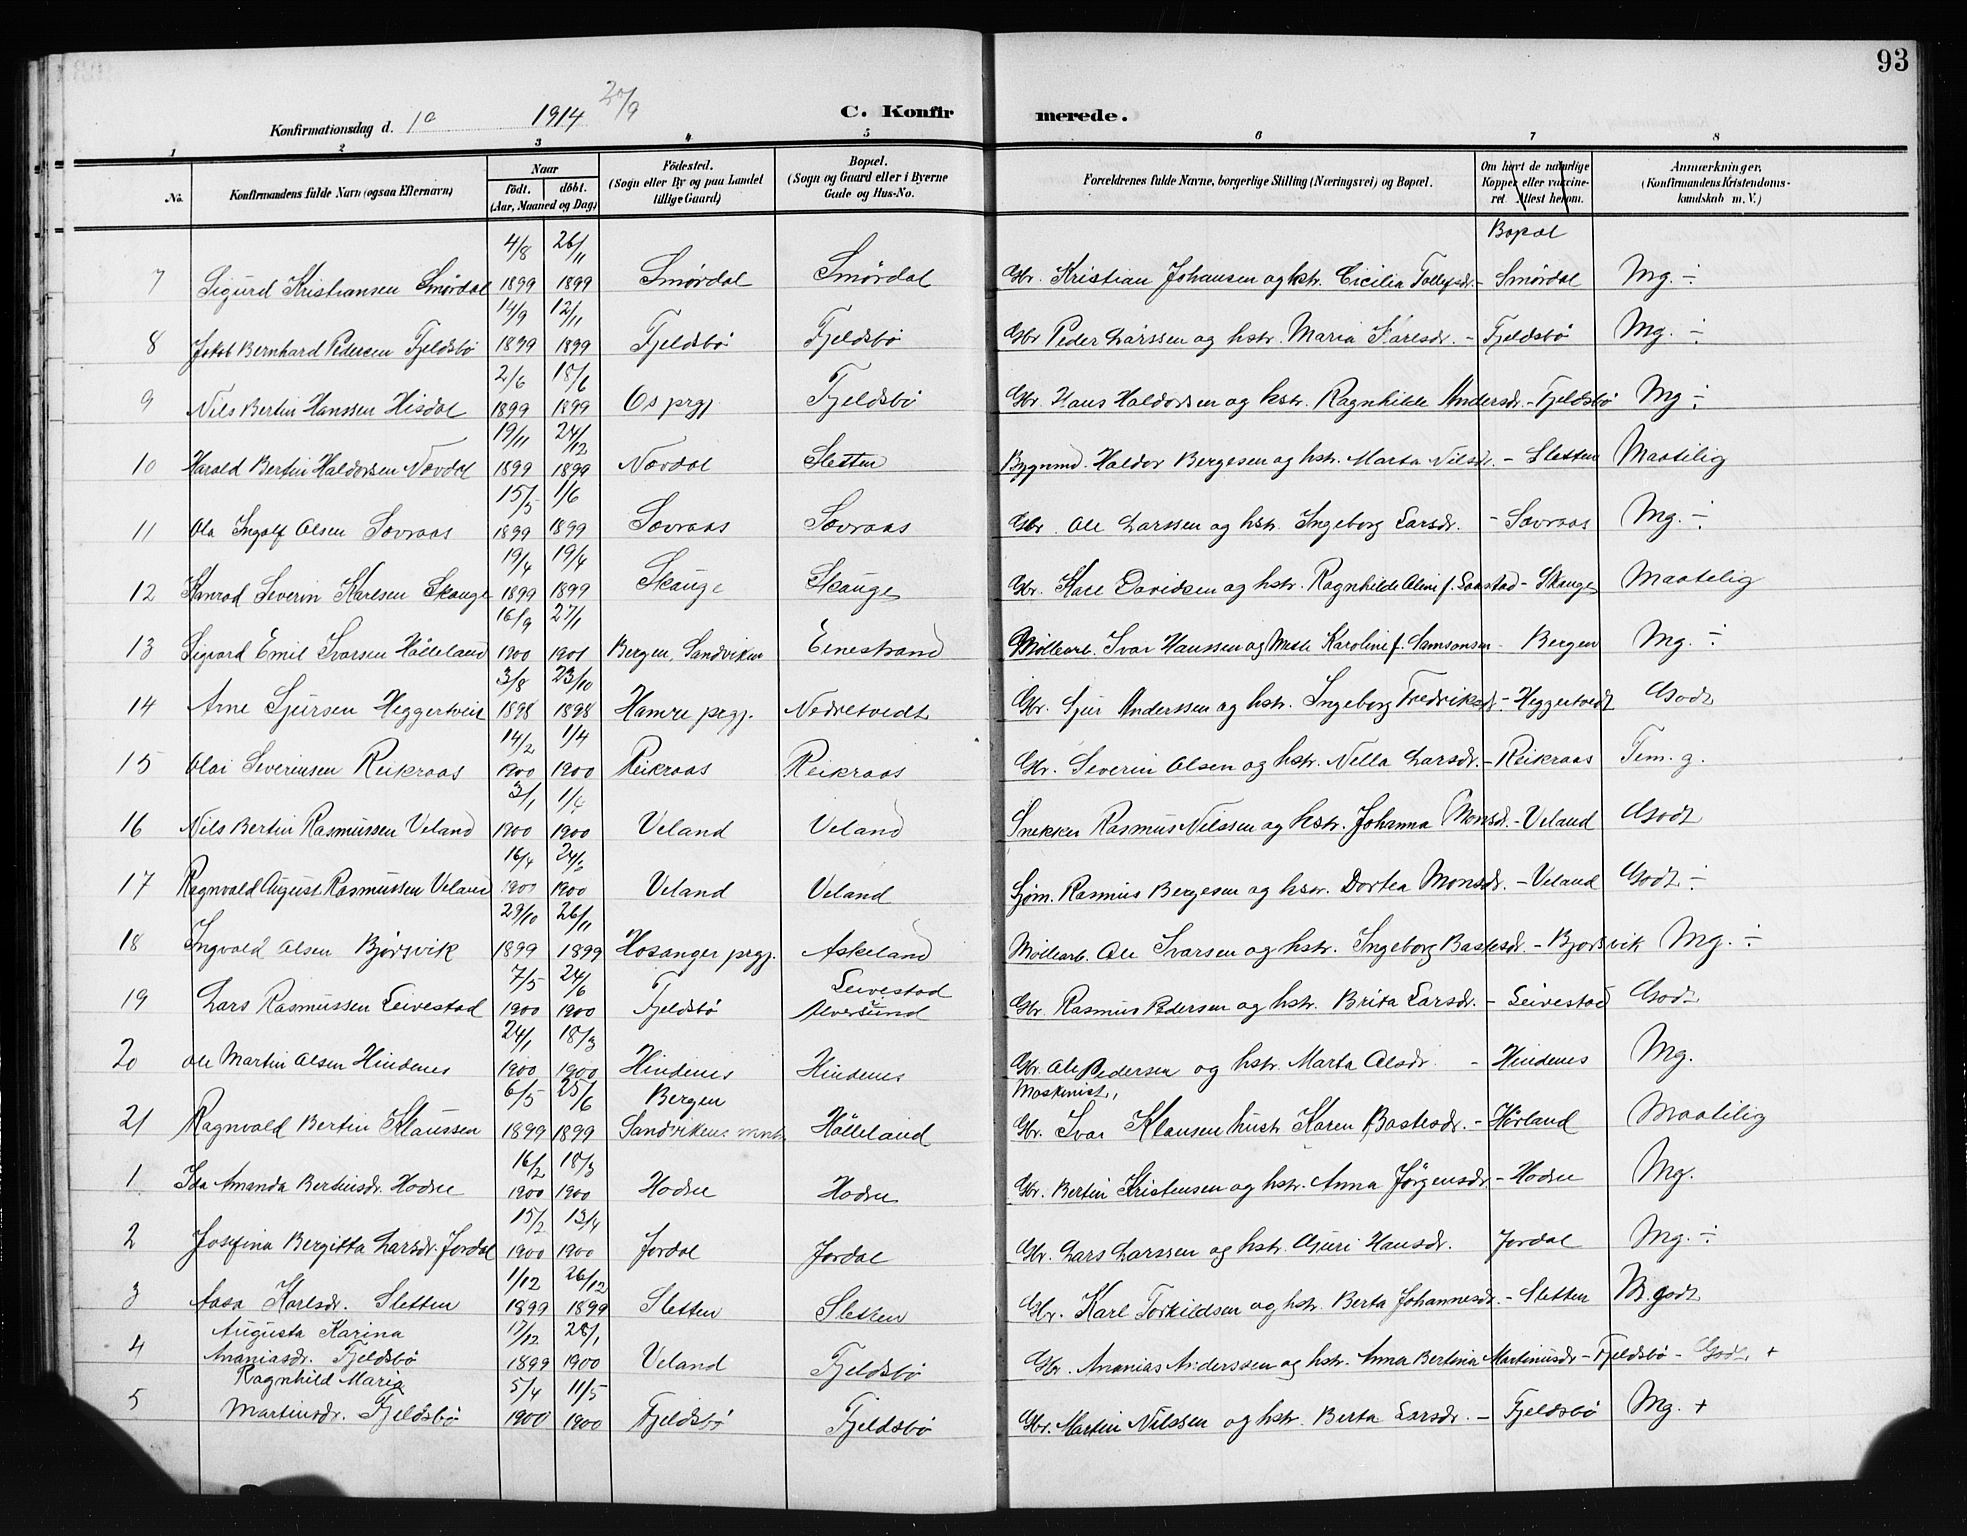 93
Konfirmationsdag d. 1914 20/9 C. Konfirmerede.
1 2 3 4 5 6 7 8
No. Konfirmandens fulde Navn (ogsaa Efternavn) Naar født. døbt. (Aar, Maaned og Dag) Fødested. (Sogn eller By og paa Landet tillige Gaard) Bopæl. (Sogn og Gaard eller i Byerne Gade og Hus-No. Forældrenes fulde Navne, borgerlige Stilling (Næringsvei) og Bopæl. Om havt de naturlige Kopper eller vaccineret. Attest herom. Anmærkninger. (Konfirmandens Kristendomskundskab m. V.)
Bopæl
4/8 26/11
7 Sigurd Kristiansen Smørdal 1899 1899 Smørdal Smørdal Gbr. Kristian Johansen og hstr. Cicilia Tollefsdr. - Smørdal Mg. ÷
14/9 12/11
8 Jakob Bernhard Pedersen Fjeldsbø 1899 1899 Fjeldsbø Fjeldsbø Gbr Peder Larssen og hstr. Maria Faresdr. - Fjeldsbø Mg. ÷
2/6 18/6
9 Nils Bertin Hanssen Hisdal 1899 1899 Os prgj. Fjeldsbø Gbr. Hans Haldorsen og hstr. Ragnhilde Andersdr. - Fjeldsbø Mg ÷
19/11 24/12
10 Harald Bertin Haldorsen Nævdal 1899 1899 Nævdal Sletten Bygnmd. Haldor Bergesen og hstr. Marta Nilsdr. - Sletten Maatelig
15/5 1/6
11 Ola Ingolf Olsen Sævraas 1899 1899 Sævraas Sævraas Gbr. Ole Larssen og hstr. Ingeborg Larsdr. - Sævraas Mg. ÷
19/4 19/4
12 Konrad Severin Karlsen Skauge 1899 1899 Skauge Skauge Gbr. Karl Davidsen og hstr. Ragnhilde Olini f. Saastad - Skauge Maatelig
16/9 27/1
13 Sigvard Emil Ivarsen Hølleland 1900 1901 Bergen, Sandviken Einestrand Møllearb. Ivar Hanssen og Karoline f. Samsonsen - Bergen Mg. ÷
3/8 23/10
14 Arne Sjursen Heggertveit 1898 1898 Hamre prgj. Nedretvedt Gbr. Sjur Anderssen og hstr. Ingeborg Fredriksd. - Heggertvedt Godt
14/2 1/4
15 Olai Severinsen Reikraas 1900 1900 Reikraas Reikraas Gbr. Severin Olsen og hstr. Nella Larsdr. - Reikraas Tem. g.
3/1 1/4
16 Nils Bertin Rasmussen Veland 1900 1900 Veland Veland Snekker Rasmus Nilssen og hstr. Johanna Monsdr. - Veland Godt
16/4 24/5
17 Ragnvald August Rasmussen Veland 1900 1900 Veland Veland Sjøm. Rasmus Bergesen og hstr. Dortea Monsdr. - Veland Godt ÷
29/10 26/11
18 Ingvald Olsen Bjørsvik 1899 1899 Hosanger prgj. Askeland Møllearb. Ole Ivarsen og hstr. Ingeborg Bastesdr. - Bjorsvik Mg. ÷
7/5 24/6 Leivestad
19 Lars Rasmussen Leivestad 1900 1900 Fjeldsbø Alversund Gbr. Rasmus Pedersen og hstr. Brita Larsdr. - Leivestad Godt
24/1 18/3
20 Ole Martin Olsen Hindenes 1900 1900 Hindenes Hindenes Gbr. Ole Pedersen og hstr. Marta Olsdr. - Hindenes Mg.
6/5 25/6 Bergen Maskinist,
21 Ragnvald Bertin Klaussen 1899 1899 Sandvikens mnh. Hølleland Gbr. Ivar Klausen hustr. Karen Bastesdr. - Hørland Maatelig
16/2 18/3
1 Ida Amanda Bertinsdr. Hodne 1900 1900 Hodne Hodne Gbr. Bertin Kristensen og hstr. Anna Jørgensdr. - Hodne Mg.
15/2 13/4
2 Josefina Bergitta Larsdr. Jordal 1900 1900 Jordal Jordal Gbr. Lars Larssen og hstr. Guri Hansdr. Jordal Mg. ÷
1/12 26/12
3 Aasa Karlsdr. Sletten 1899 1899 Sletten Sletten Gbr. Karl Torkildsen og hstr. Berta Johannesdr. - Sletten M. godt
Augusta Karina 17/12 28/1
4 Ananiasdr. Fjeldsbø 1899 1900 Veland Fjeldsbø Gbr. Ananias Anderssen og hstr. Anna Bertina Martinusdr - Fjeldsbø - Godt +
Ragnhild Maria 5/4 11/5
5 Martinsdr. Fjeldsbø 1900 1900 Fjeldsbø Fjeldsbø Gbr. Martin Nilssen og hstr. Berta Larsdr. - Fjeldsbø Mg. +